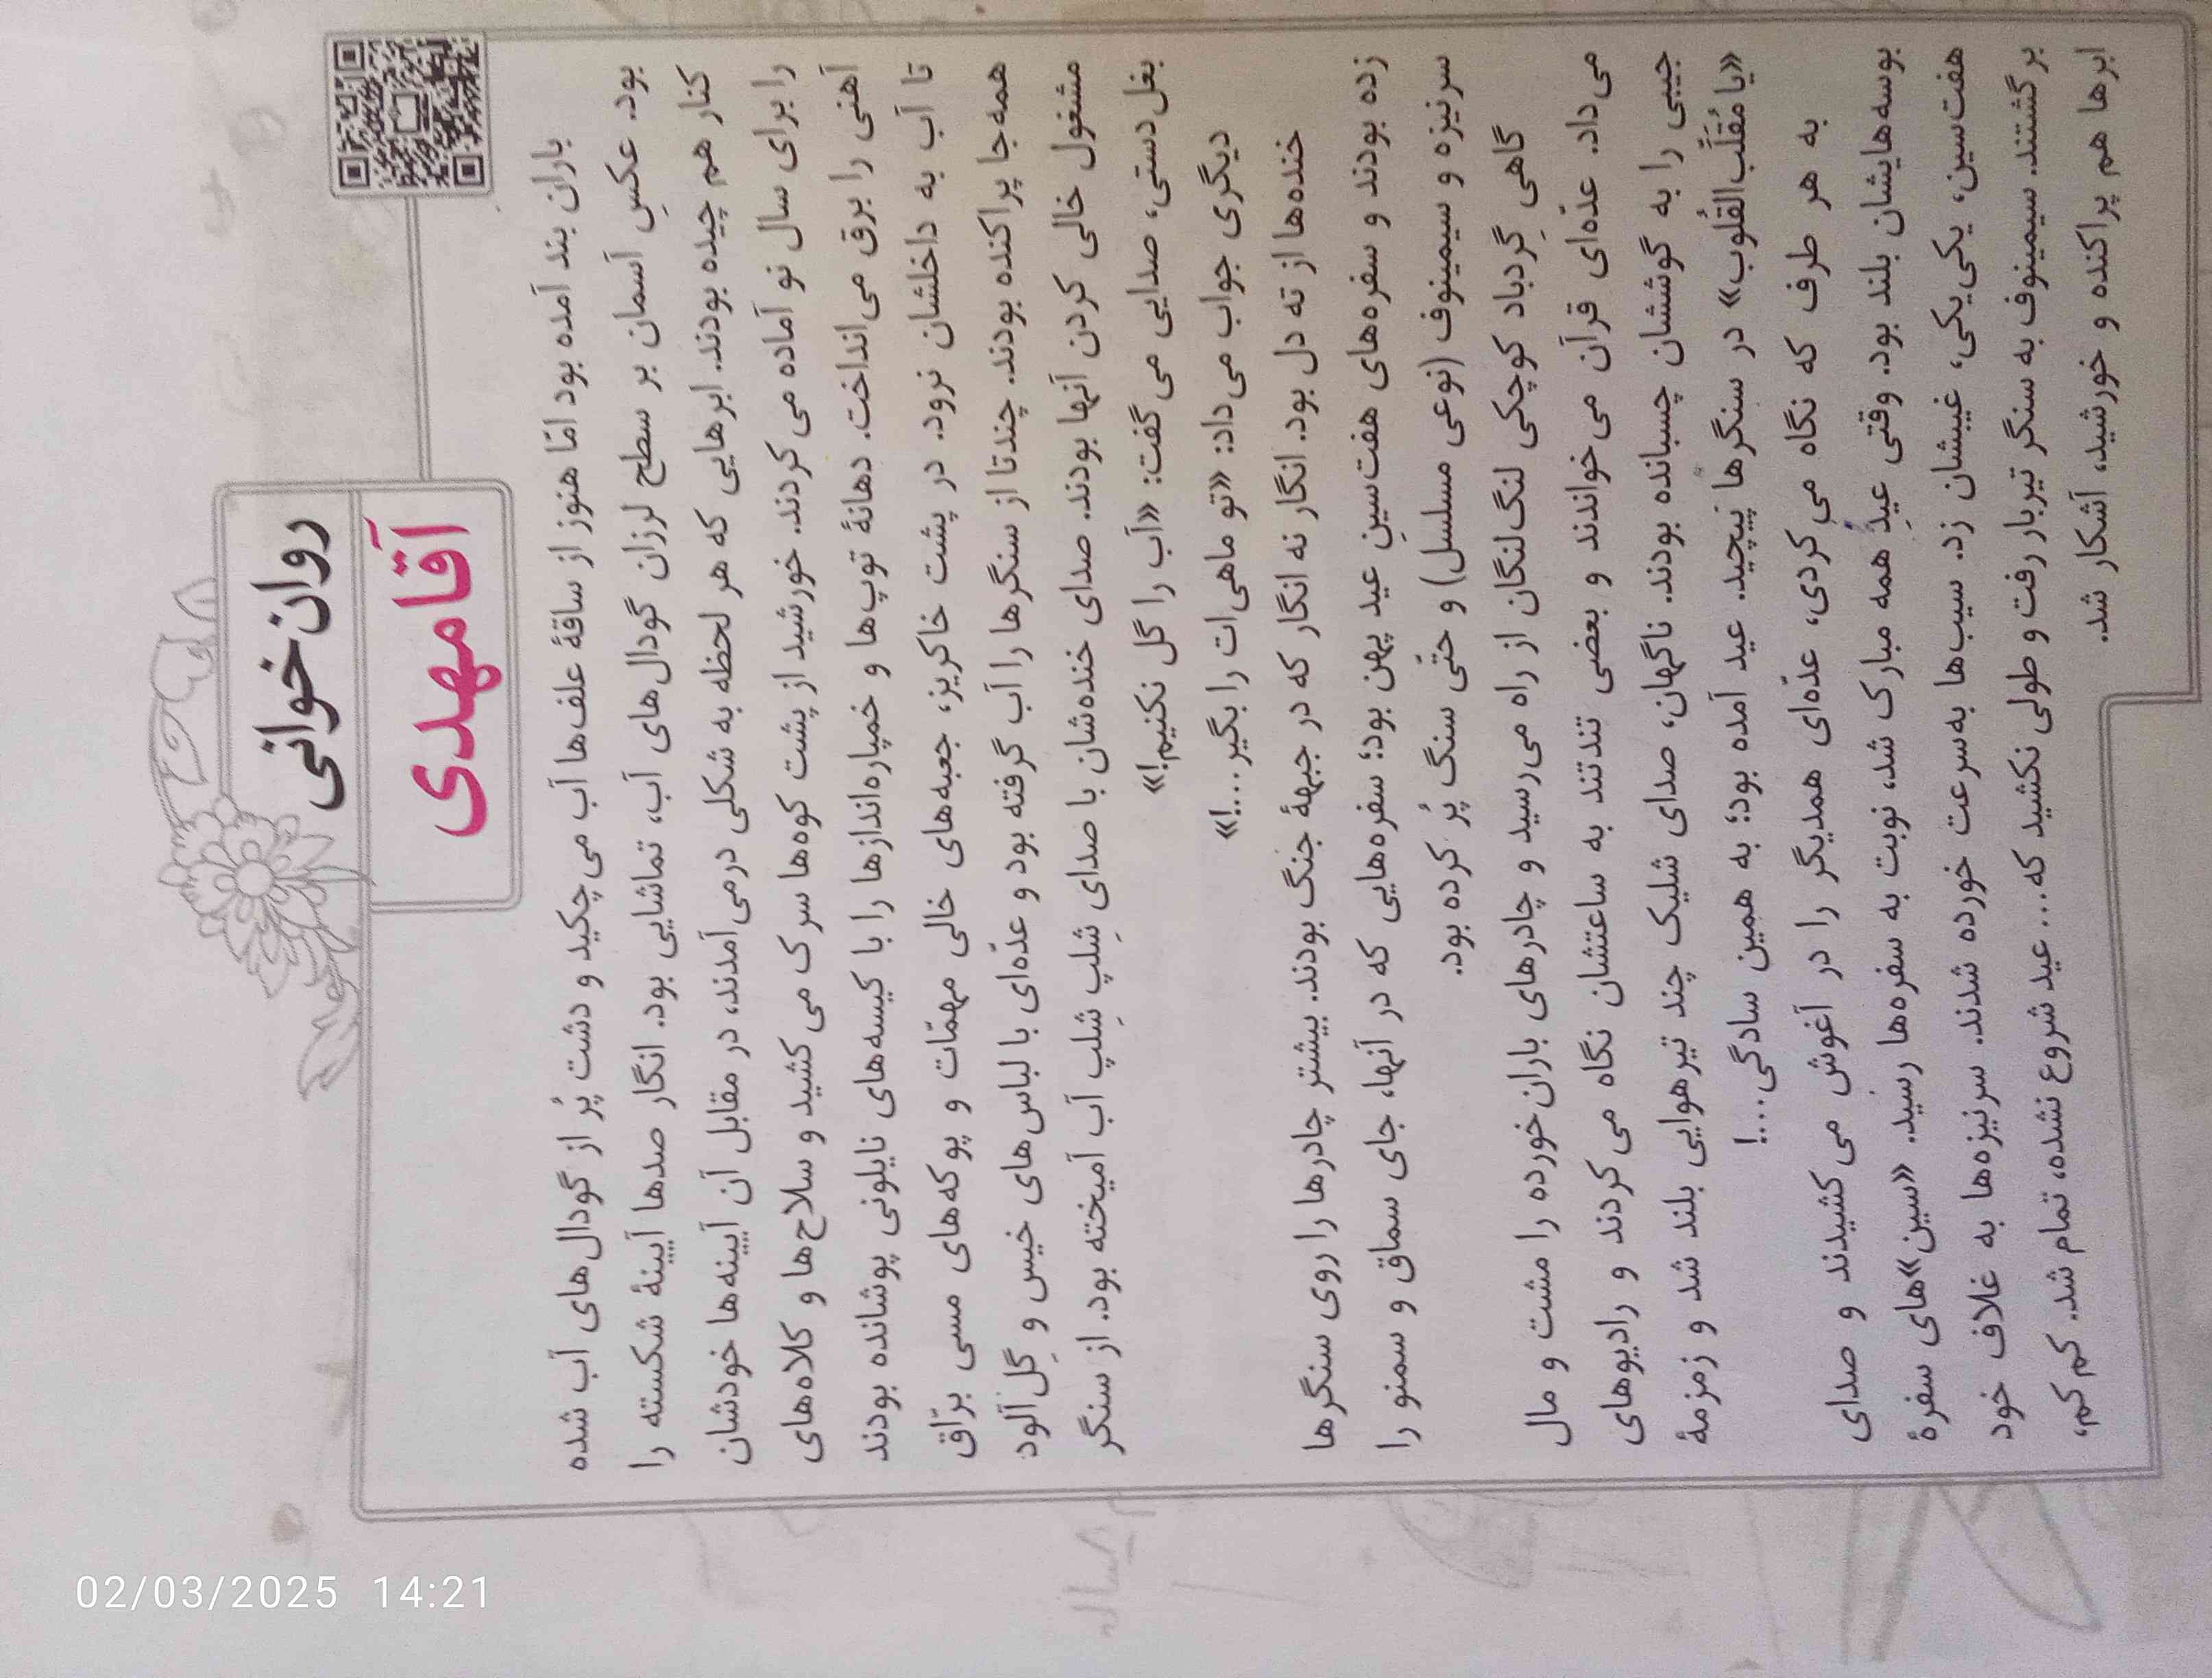 روان‌خوانی
آقا مهدی
باران بند آمده بود امّا هنوز از ساقهٔ علف‌ها آب می‌چکید و دشت پُر از گودال‌های آب شده
بود. عکسِ آسمان بر سطح لرزان گودال‌های آب، تماشایی بود. انگار صدها آیینهٔ شکسته را
کنار هم چیده بودند. ابرهایی که هر لحظه به شکلی درمی‌آمدند، در مقابل آن آیینه‌ها خودشان
را برای سال نو آماده می‌کردند. خورشید از پشت کوه‌ها سرک می‌کشید و سلاح‌ها و کلاه‌های
آهنی را برق می‌انداخت. دهانهٔ توپ‌ها و خمپاره‌اندازها را با کیسه‌های نایلونی پوشانده بودند
تا آب به داخلشان نرود. در پشت خاکریز، جعبه‌های خالی مهمّات و پوکه‌های مسی برّاق
همه‌جا پراکنده بودند. چندتا از سنگرها را آب گرفته بود و عدّه‌ای با لباس‌های خیس و گِل‌آلود
مشغول خالی کردن آنها بودند. صدای خنده‌شان با صدایِ شِلپ شِلپ آب آمیخته بود. از سنگر
بغل‌دستی، صدایی می‌گفت: «آب را گل نکنیم!»
دیگری جواب می‌داد: «تو ماهی‌ات را بگیر...!»
خنده‌ها از ته دل بود. انگار نه انگار که در جبههٔ جنگ بودند. بیشتر چادرها را روی سنگرها
زده بودند و سفره‌های هفت‌سینِ عید پهن بود؛ سفره‌هایی که در آنها، جای سماق و سمنو را
سرنیزه و سیمینوف (نوعی مسلسل) و حتّی سنگ پُر کرده بود.
گاهی گِردباد کوچکی لنگ‌لنگان از راه می‌رسید و چادرهای باران‌خورده را مشت و مال
می‌داد. عدّه‌ای قرآن می‌خواندند و بعضی تندتند به ساعتشان نگاه می‌کردند و رادیوهای
جیبی را به گوششان چسبانده بودند. ناگهان، صدای شلیک چند تیر هوایی بلند شد و زمزمهٔ
«یا مُقَلِّب‌القُلوب» در سنگرها پیچید. عید آمده بود؛ به همین سادگی...!
به هر طرف که نگاه می‌کردی، عدّه‌ای همدیگر را در آغوش می‌کشیدند و صدای
بوسه‌هایشان بلند بود. وقتی عیدِ همه مبارک شد، نوبت به سفره‌ها رسید. «سین»های سفرهٔ
هفت‌سین، یکی‌یکی، غیبشان زد. سیب‌ها به‌سرعت خورده شدند. سرنیزه‌ها به غلاف خود
برگشتند. سیمینوف به سنگر تیربار رفت و طولی نکشید که... عید شروع نشده، تمام شد. کم‌کم،
ابرها هم پراکنده و خورشید، آشکار شد.
02/03/2025 14:21